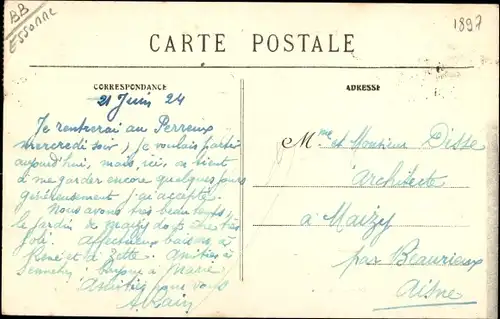 BB
ESSONNE
1897
CARTE POSTALE
CORRESPONDANCE
ADRESSE
21 Juin 24
Je rentrerai au Perreux
mercredi soir, je voulais partir
aujourd'hui, mais, ici, on tient
à me garder encore quelques jours
généreusement j'ai accepté.
Nous avons très beau temps
le jardin de Maizy doit être très
joli. Affectueux baisers à
René et à Zette. Amitiés à
bonjour à Marie
Amitiés pour vous
Mme et Monsieur Disse
Architecte
à Maizy
par Beaurieux
Aisne